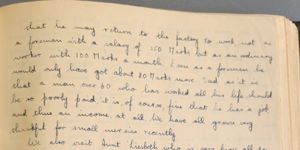 that he may return to the factory to work not as
a foreman with a salary of 150 Marks but as an ordinary
worker with 100 Marks a month. Even as a foreman he
would only have got about 20 Marks more. Sad as it is
that a man over 60 who has worked all his life should
be so poorly paid it is, of course, fine that he has a job
and thus an income at all. We have all grown very
thankful for small mercies recently.
We also went Liesbeth who is very